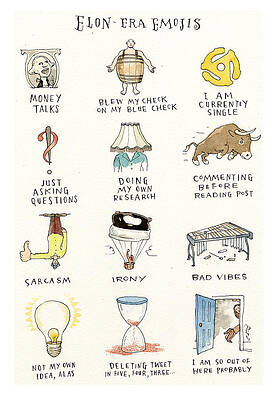 ELON-ERA EMOJIS
MONEY
TALKS
BLEW MY CHECK
ON MY BLUE CHECK
I AM
CURRENTLY
SINGLE
JUST
ASKING
QUESTIONS
DOING
MY OWN
RESEARCH
COMMENTING
BEFORE
READING POST
SARCASM
IRONY
BAD VIBES
NOT MY OWN
IDEA, ALAS
DELETING TWEET
IN FIVE, FOUR, THREE...
I AM SO OUT OF
HERE PROBABLY